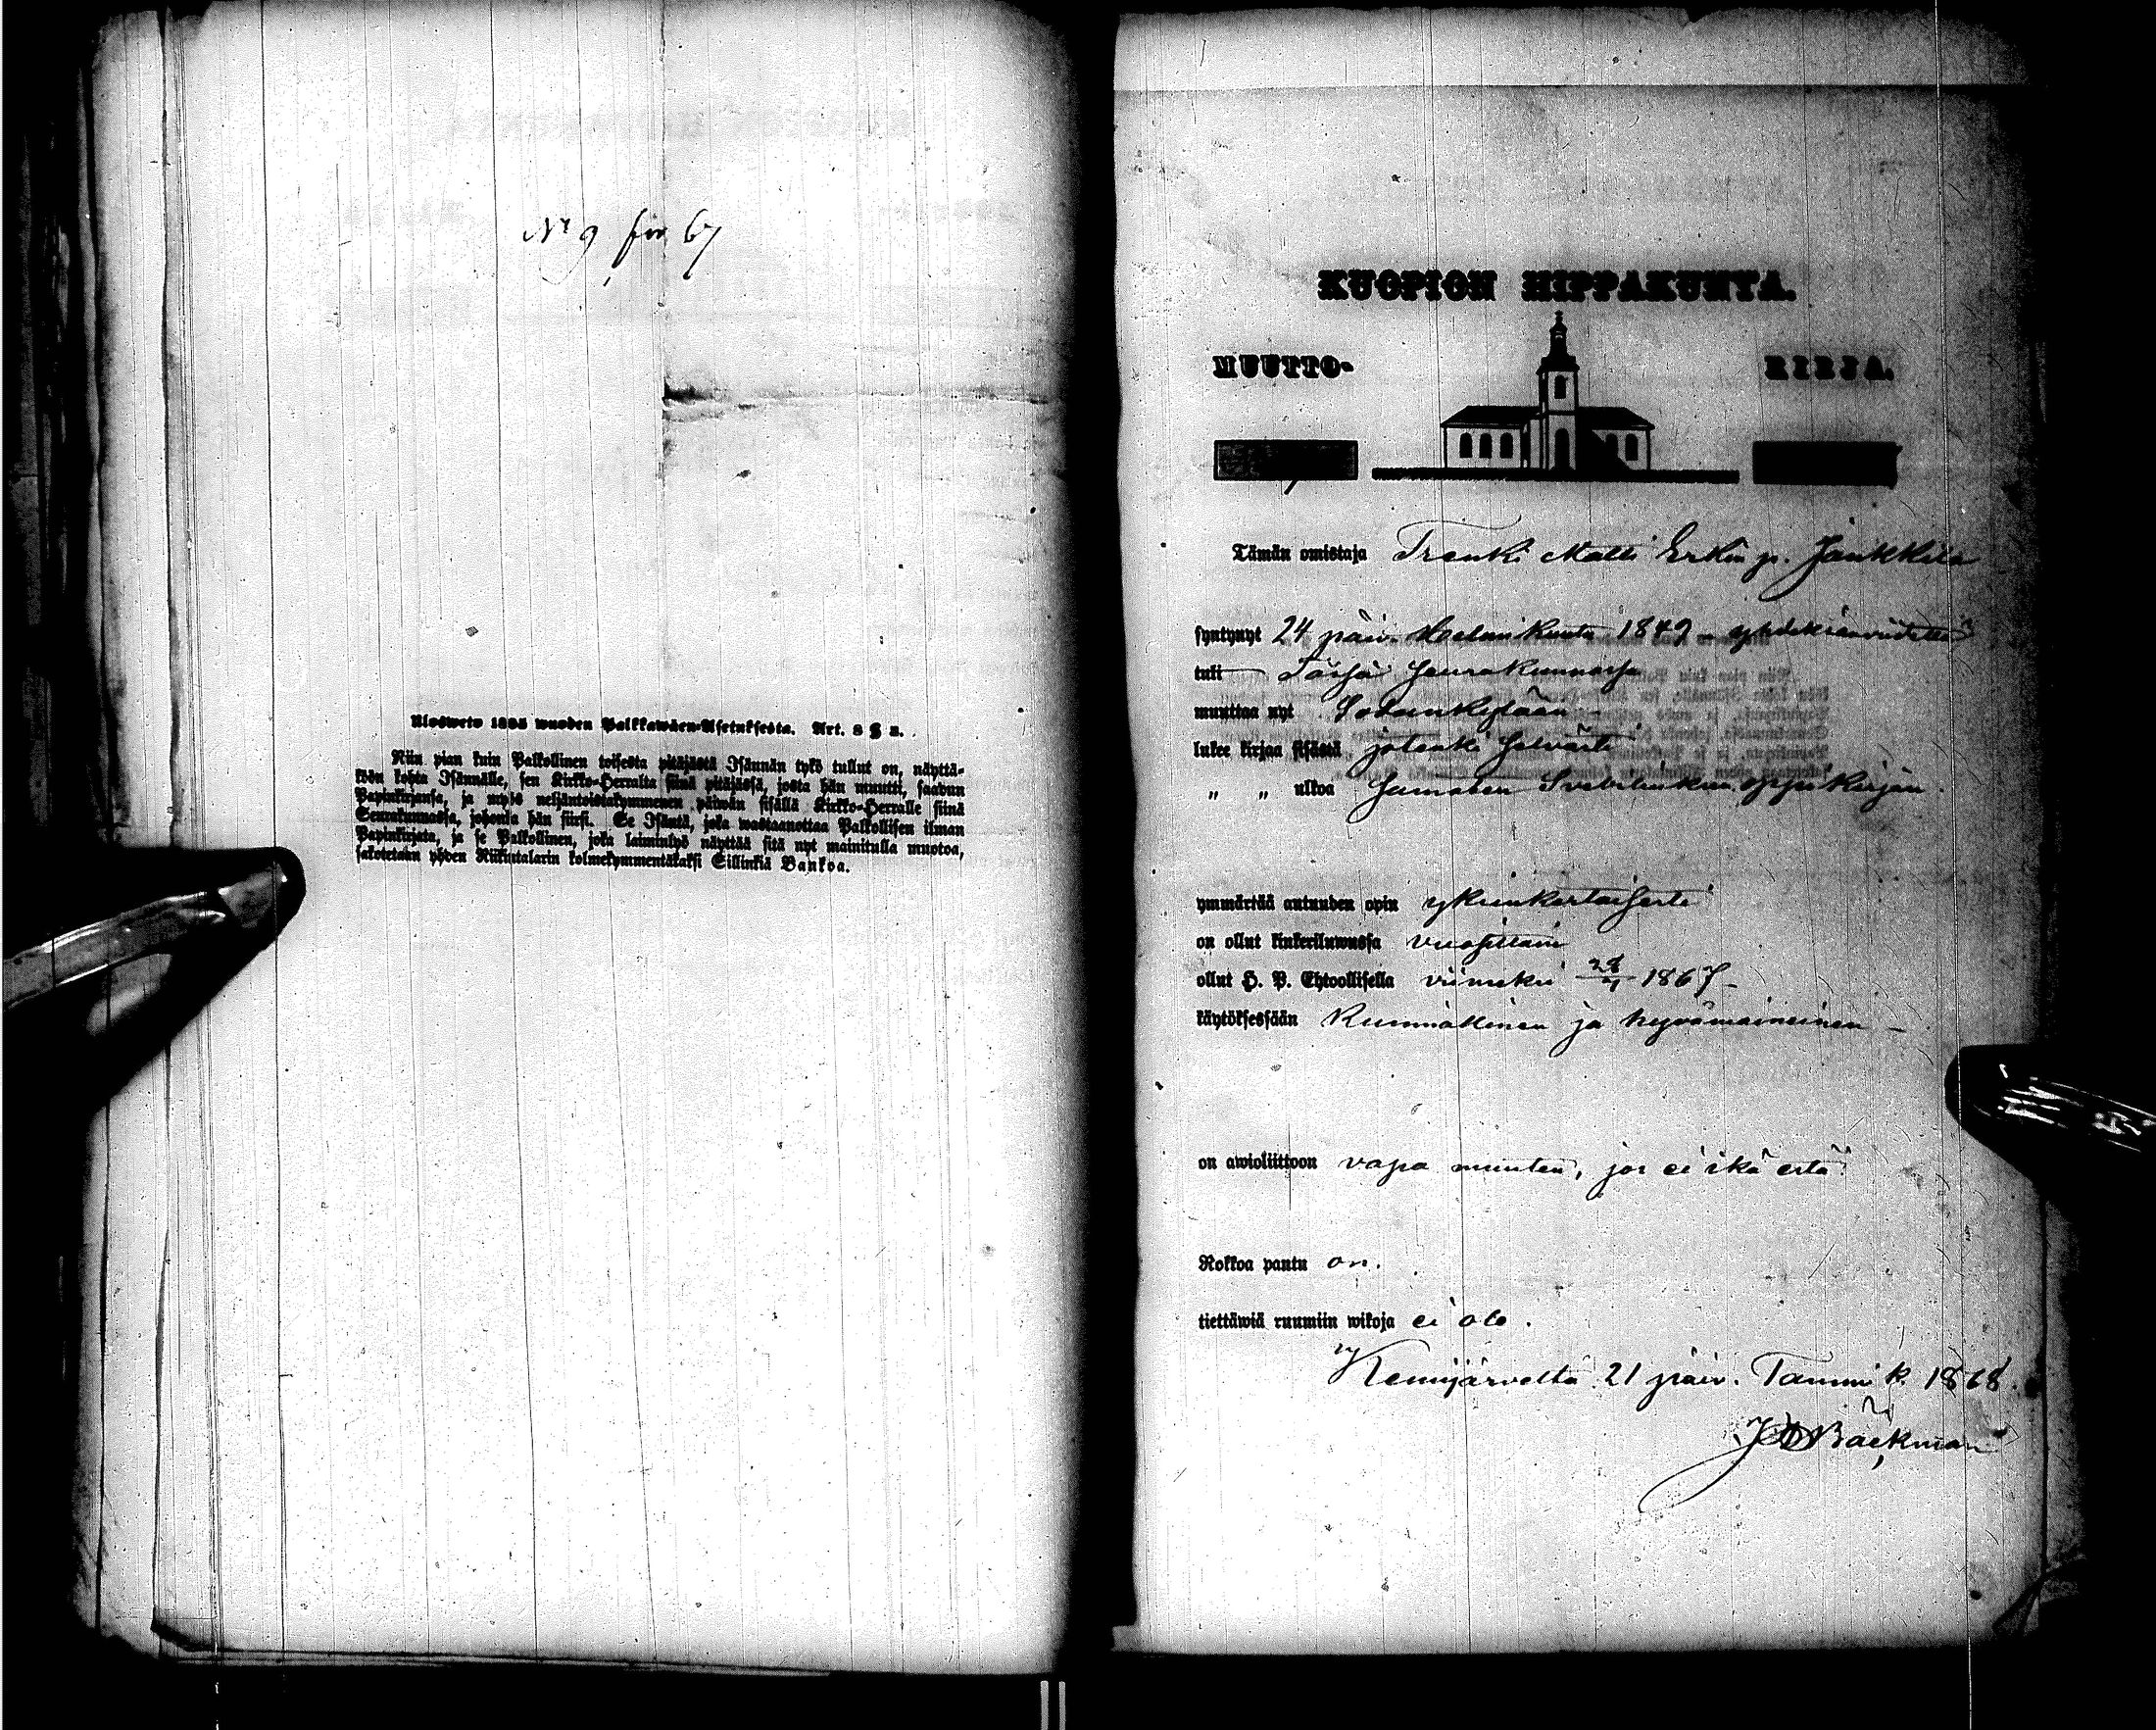 Nr 9 för 67
Ulosweto 1805 wuoden Palkkawäen-Asetuksesta. Art. 8 § 2.
Niin pian kuin Palkollinen toisesta pitäjästä Isännän tykö tullut on, näyttä-
köön kohta Isännälle, sen Kirkko-Herralta siinä pitäjässä, josta hän muutti, saadun
Papinkirjansa, ja myös neljäntoistakymmenen päiwän sisällä Kirkko-Herralle siinä
Seurakunnassa, johonka hän siirsi. Se Isäntä, joka wastaanottaa Palkollisen ilman
Papinkirjata, ja se Palkollinen, joka laiminlyö näyttää sitä nyt mainitulla muotoa,
sakotetaan yhden Riikintalarin kolmekymmentäkaksi Sillinkiä Bankoa.
KUOPION HIPPAKUNTA.
MUUTTO- KIRJA.
Tämän omistaja Trenki Matti Erkin p. Jänkkilä
syntynyt 24 päiv. Helmikuuta 1849
tuli Tässä Seurakunnassa
muuttaa nyt Sodankylään
lukee kirjaa sisästä jotenki selvästi
„ „ ulkoa Jumalan Svebiliuksen oppi kirjan.
ymmärtää autuuden opin yksinkertaisesti
on ollut kinkeriluwussa vuosittain
ollut H. P. Ehtoollisella viimeksi 1867
käytöksessään kunniallinen ja hyvämaineinen
on awioliittoon vapa muuten, jos ei ikä estä
Rokkoa pantu on.
tiettäwiä ruumiin wikoja ei ole.
Kemijärveltä 21 päiv. Tammi k. 1868.
Bäckman